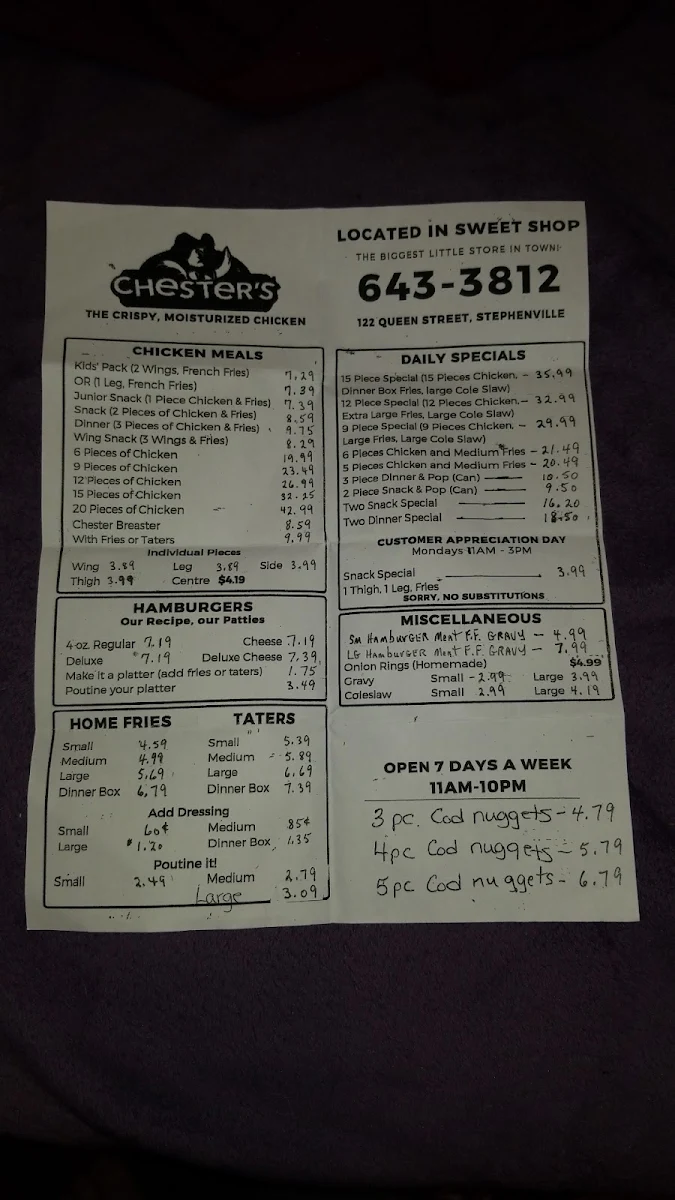 CHESTER'S
THE CRISPY, MOISTURIZED CHICKEN
LOCATED IN SWEET SHOP
THE BIGGEST LITTLE STORE IN TOWN!
643-3812
122 QUEEN STREET, STEPHENVILLE
CHICKEN MEALS
Kids' Pack (2 Wings, French Fries) 7.29
OR (1 Leg, French Fries) 7.39
Junior Snack (1 Piece Chicken & Fries) 7.39
Snack (2 Pieces of Chicken & Fries) 8.59
Dinner (3 Pieces of Chicken & Fries) 9.75
Wing Snack (3 Wings & Fries) 8.29
6 Pieces of Chicken 19.99
9 Pieces of Chicken 23.49
12 Pieces of Chicken 26.99
15 Pieces of Chicken 32.25
20 Pieces of Chicken 42.99
Chester Breaster 8.59
With Fries or Taters 9.99
Individual Pieces
Wing 3.89 Leg 3.89 Side 3.99
Thigh 3.99 Centre $4.19
HAMBURGERS
Our Recipe, our Patties
4 oz. Regular 7.19 Cheese 7.19
Deluxe 7.19 Deluxe Cheese 7.39
Make it a platter (add fries or taters) 1.75
Poutine your platter 3.49
HOME FRIES TATERS
Small 4.59 Small 5.39
Medium 4.99 Medium 5.89
Large 5.69 Large 6.69
Dinner Box 6.79 Dinner Box 7.39
Add Dressing
Small 60¢ Medium 85¢
Large $1.20 Dinner Box 1.35
Poutine it!
Small 2.49 Medium 2.79
Large 3.09
DAILY SPECIALS
15 Piece Special (15 Pieces Chicken, - 35.99
Dinner Box Fries, large Cole Slaw)
12 Piece Special (12 Pieces Chicken, - 32.99
Extra Large Fries, Large Cole Slaw)
9 Piece Special (9 Pieces Chicken, - 29.99
Large Fries, Large Cole Slaw)
6 Pieces Chicken and Medium Fries - 21.49
5 Pieces Chicken and Medium Fries - 20.49
3 Piece Dinner & Pop (Can) 10.50
2 Piece Snack & Pop (Can) 9.50
Two Snack Special 16.20
Two Dinner Special 18.50
CUSTOMER APPRECIATION DAY
Mondays 11AM - 3PM
Snack Special 3.99
1 Thigh, 1 Leg, Fries
SORRY, NO SUBSTITUTIONS
MISCELLANEOUS
Sm HAMBURGER Meat F.F. GRAVY - 4.99
LG HAMBURGER Meat F.F. GRAVY - 7.99
Onion Rings (Homemade) $4.99
Gravy Small - 2.99 Large 3.99
Coleslaw Small 2.99 Large 4.19
OPEN 7 DAYS A WEEK
11AM-10PM
3 pc. Cod nuggets - 4.79
4pc Cod nuggets - 5.79
5pc Cod nuggets - 6.79